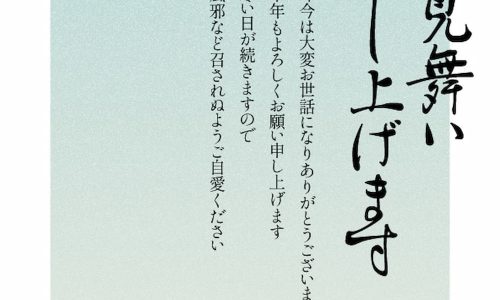 見舞い
し上げます
今は大変お世話になりありがとうございま
年もよろしくお願い申し上げます
い日が続きますので
邪など召されぬようご自愛ください